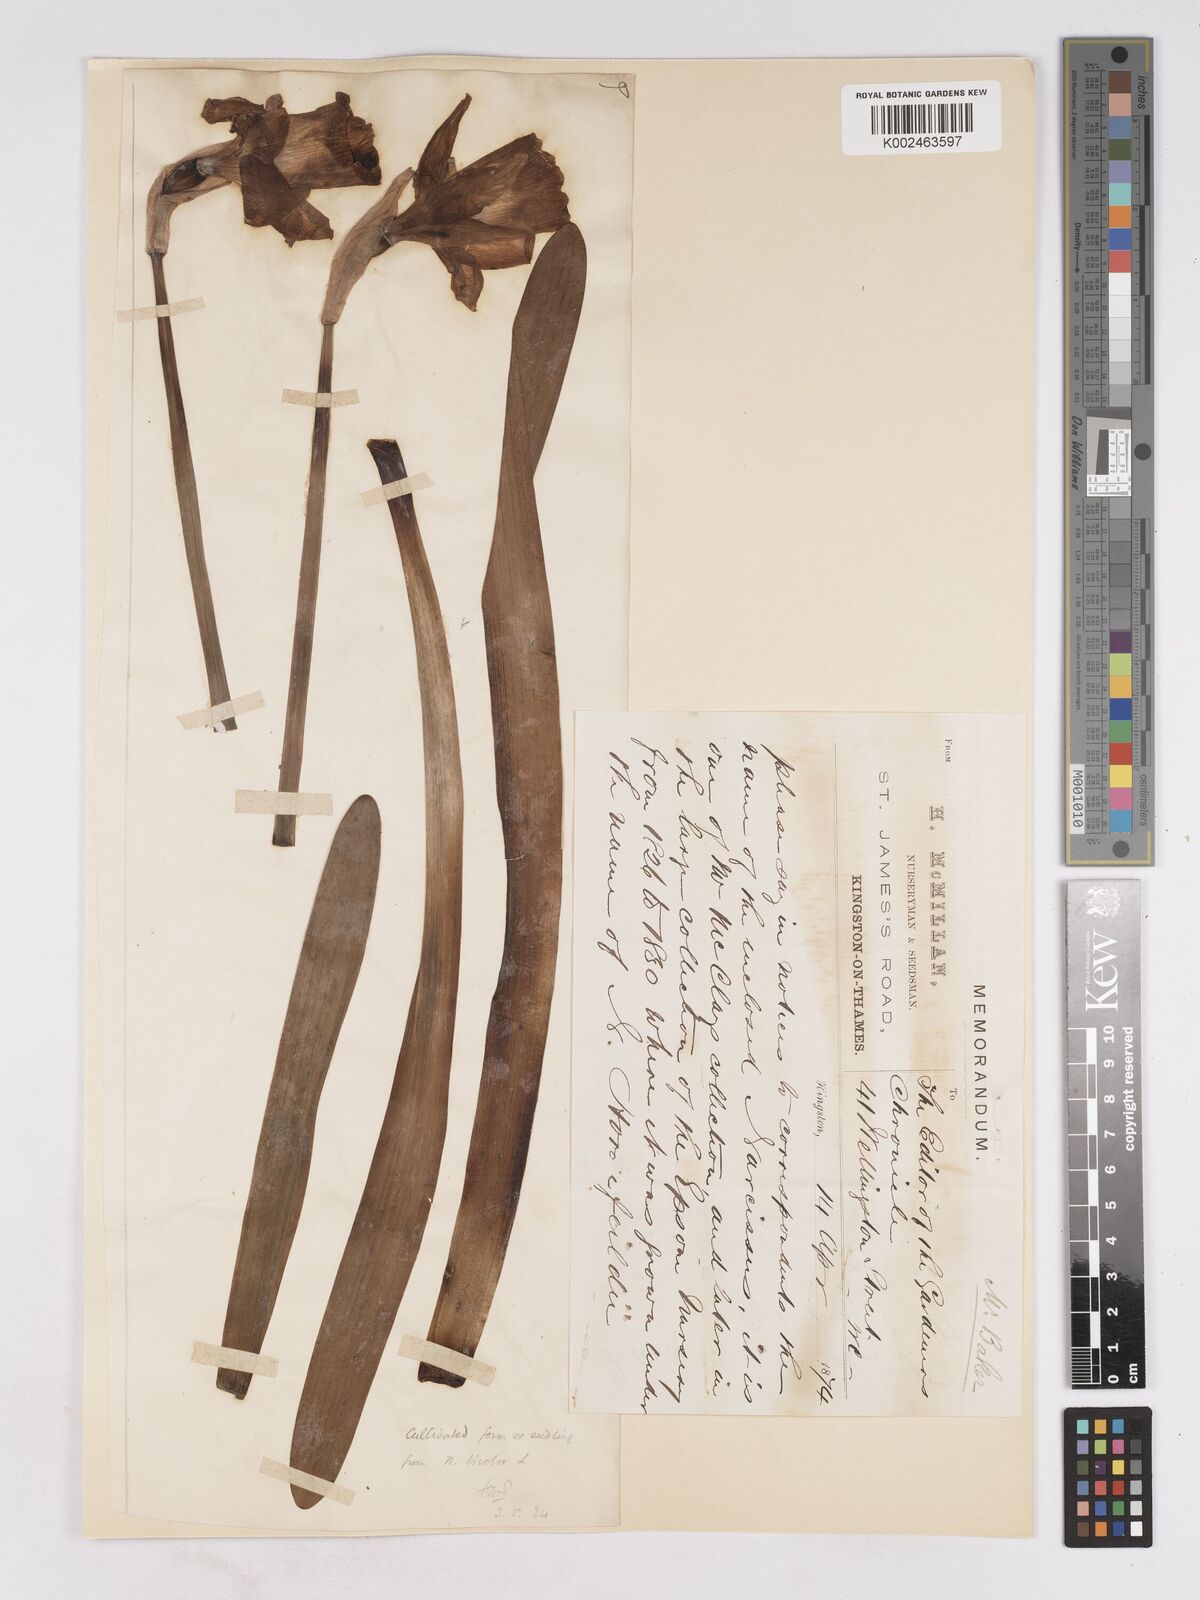 ROYAL BOTANIC GARDENS KEW
K002463597
Mr Baker
MEMORANDUM.
FROM
H. McMILLAN,
NURSERYMAN & SEEDSMAN.
ST. JAMES'S ROAD,
KINGSTON-ON-THAMES.
To
The Editor of the Gardeners
Chronicle
41 Wellington Street
WC
Kingston, 14 Apr 1874
please say in notices to correspondents the
name of the enclosed Narcissus, it is
one of the collection, and later in
the large collection of the Epsom Nursery
from 1826 to 1830 where it was grown under
the name of N.
Cultivated form or seedling
from N. bicolor L.
inches
centimeters
Density
Don Williams
M001010
Kew
All rights reserved
copyright reserved
0 1 2 3 4 5 6 7 8 9 10
cm